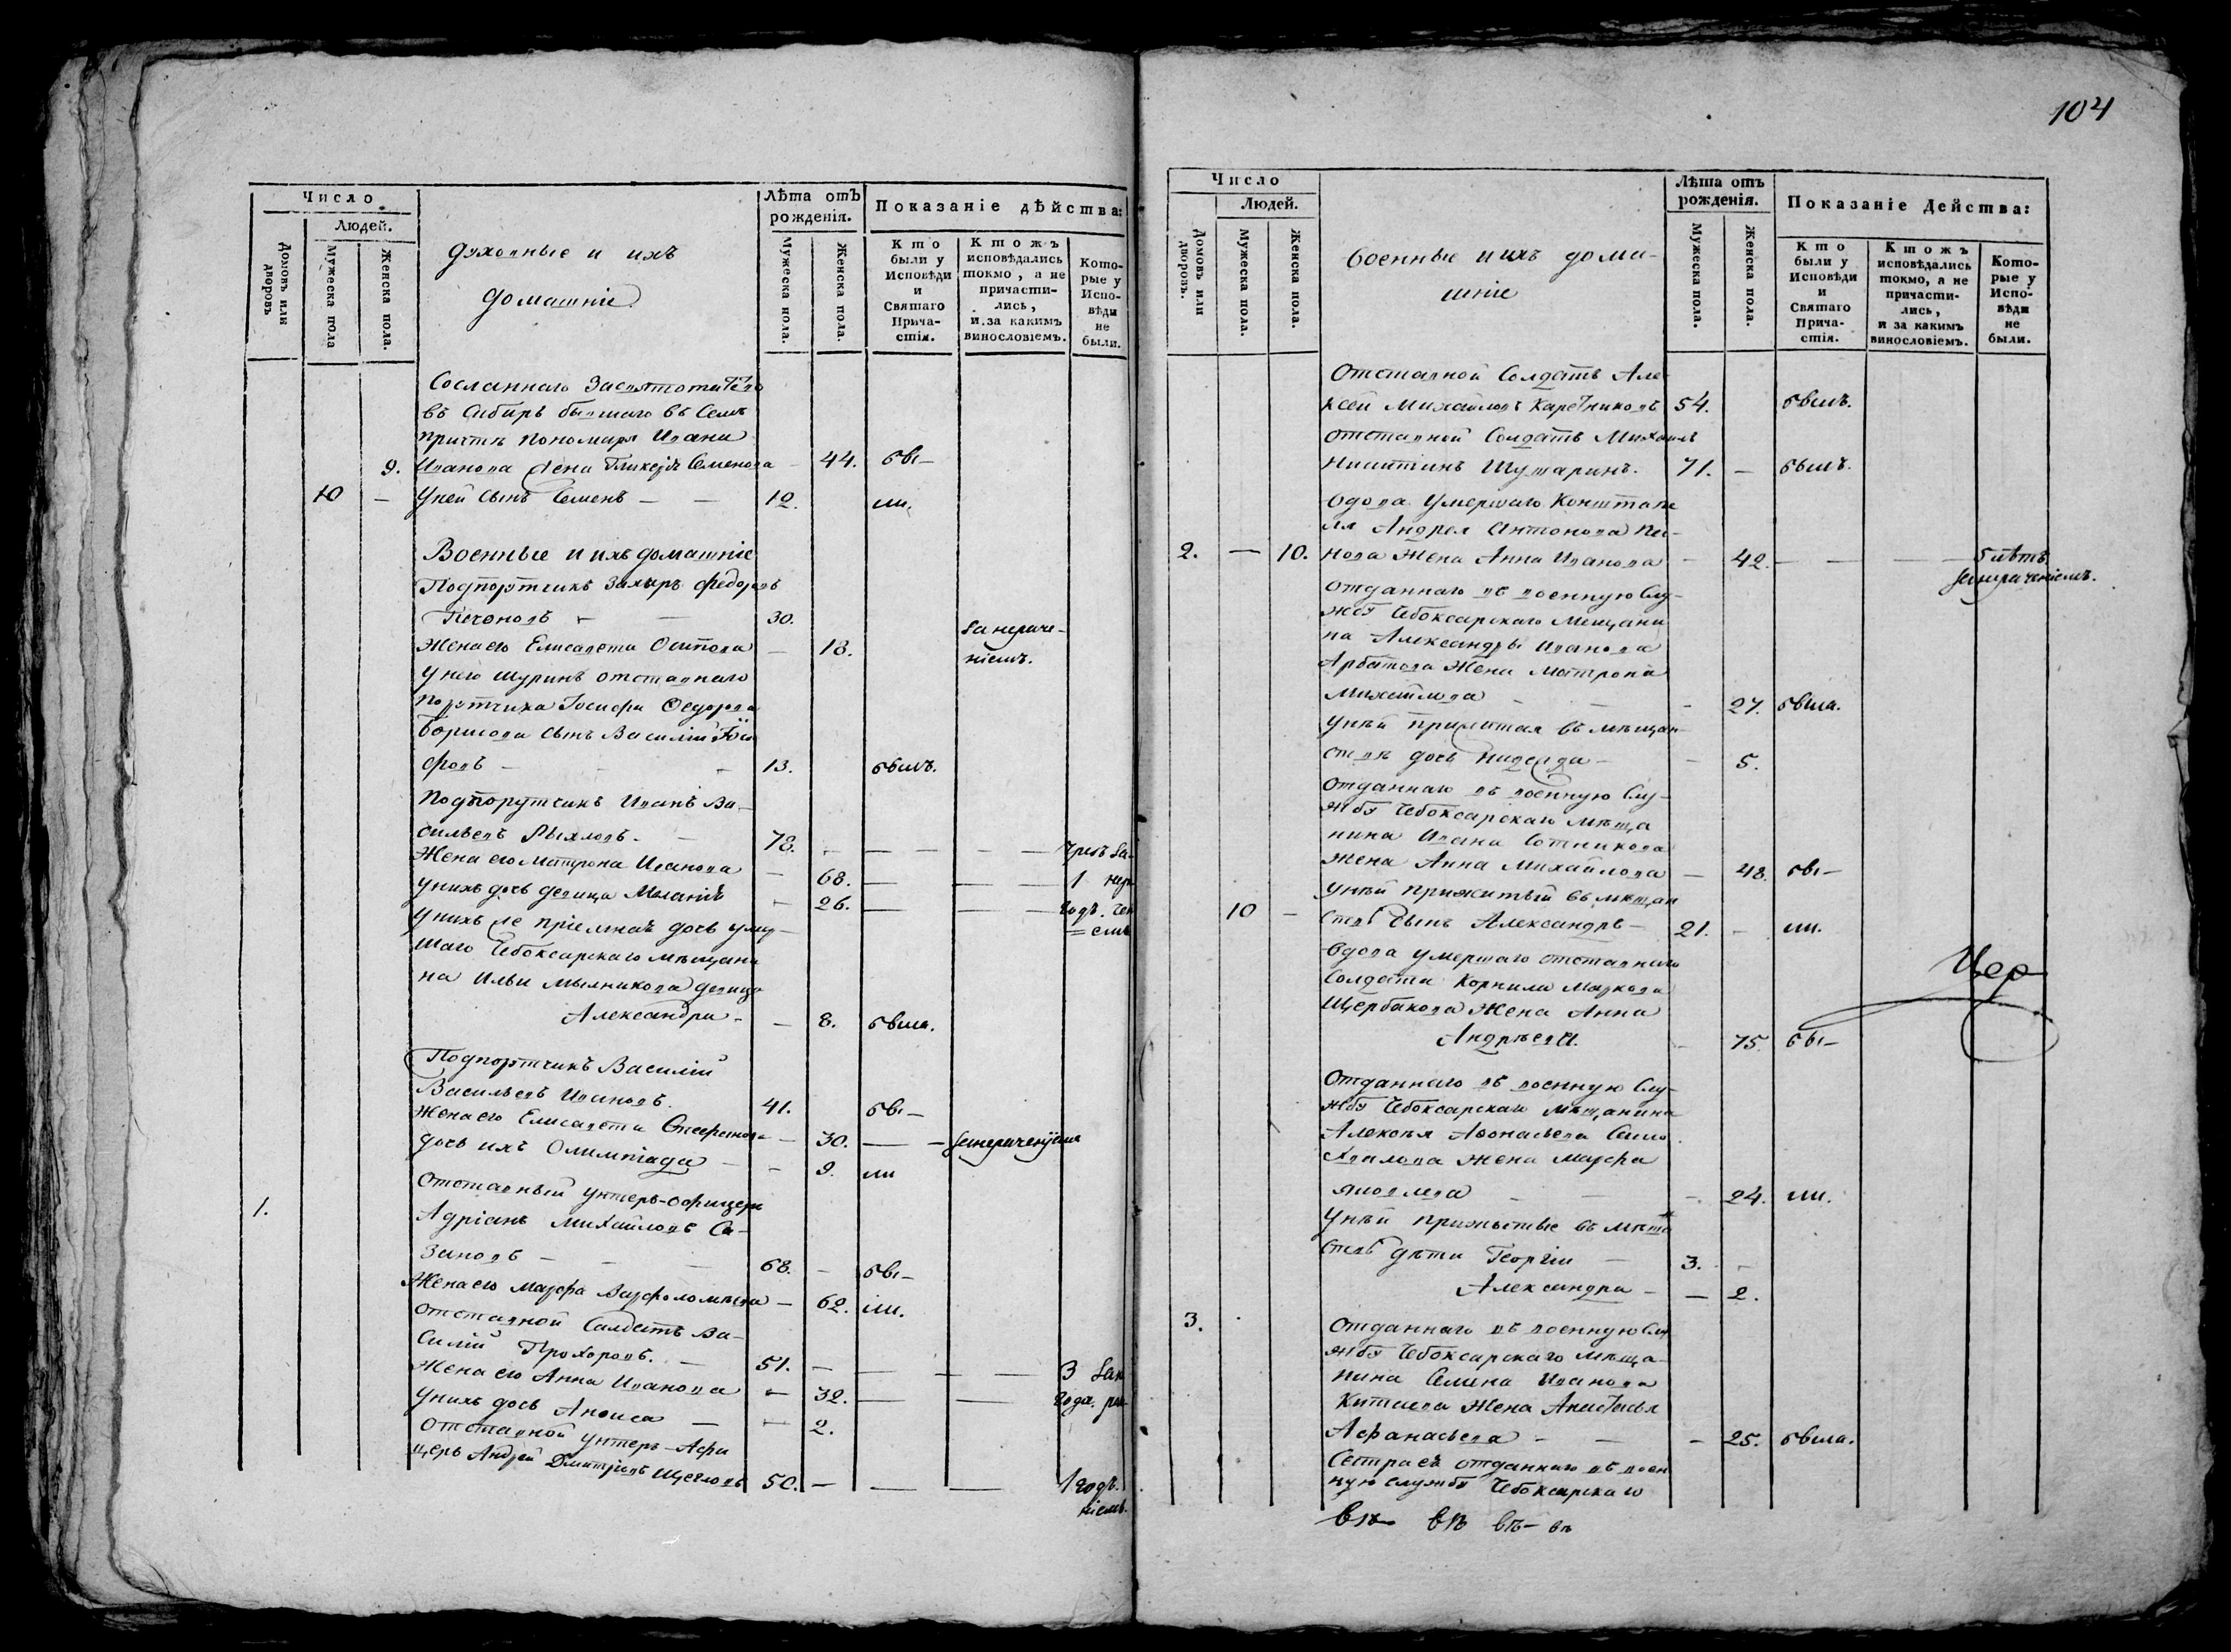 Число
Людей.
Домовъ или дворовъ
Мужеска пола
Женска пола.
Духовные и ихъ
домашніе
Лѣта отъ
рожденія.
Мужеска пола.
Женска пола.
Показаніе дѣйства:
Кто
были у
Исповѣди
и
Святаго
Прича-
стія.
Ктожъ
исповѣдались
токмо, а не
причасти-
лись,
и за какимъ
винословіемъ.
Кото-
рые у
Испо-
вѣди
не
были.
Сосланнаго
въ Сибирь бывшаго въ Семъ
причтѣ Пономаря Ивана
9. Иванова Жена Гликерія Семенова - 44. бы-
10 - У ней сынъ Семенъ - - 12. ли.
Военные и ихъ домашніе
Подпорутчикъ Захаръ Федоровъ
30.
Жена его Елисавета Осипова - 18. за нераче-
ніемъ.
У него шуринъ отставнаго
порутчика Іосифа Федорова
Борисова сынъ Василій Іоси
фовъ - - - 13. былъ.
Подпорутчикъ Иванъ Ва-
сильевъ Рыхловъ. - 78. - - - - -
Жена его Матрона Иванова - 68. - - - 1
У нихъ дочь девица Меланія - 26. - - годъ.
У нихъ же пріемная дочь умер-
шаго Чебоксарскаго мѣщани
на Ильи Мыльникова девица
Александра - - 8. была.
Подпорутчикъ Василій
Васильевъ Ивановъ. 41. бы-
Жена его Елисавета - 30. - - за нераченіемъ
дочь ихъ Олимпіада - - 9. ли
1. Отставный унтеръ-офицеръ
Адріанъ Михайловъ Са-
зановъ - - - 68. - бы-
Жена его Марфа Варфоломѣева - 62. ли.
Отставной Салдатъ Ва-
силій Прохоровъ. - 51. - - - - 3 за не
Жена его Анна Иванова - 32. - - года. ра
У нихъ дочь Анфиса - - 2.
Отставной унтеръ-Афи
церъ Андрей Дмитріевъ Щегловъ 50. - - - 1 годъ.
ніемъ.
104
Число
Людей.
Домовъ или дворовъ.
Мужеска пола.
Женска пола.
Военные и ихъ дома-
шніе
Лѣта отъ
рожденія.
Мужеска пола.
Женска пола.
Показаніе Действа:
Кто
были у
Исповѣди
и
Святаго
Прича-
стія.
Ктожъ
исповѣдались
токмо, а не
причасти-
лись,
и за какимъ
винословіемъ.
Кото-
рые у
Испо-
вѣди
не
были.
Отставной Солдатъ Але-
ксей Михайловъ Каретниковъ 54. былъ.
Отставной Солдатъ Михаилъ
Никитинъ Шумаринъ. 71. - былъ.
Вдова умершаго Конштапе
ля Андрея Антонова Пи-
2. - 10. нова Жена Анна Иванова - 42. - - - 5 лѣтъ
за нераченіемъ.
Отданнаго въ военную Слу-
жбу Чебоксарскаго Мещани
на Александра Иванова
Арбатова Жена Матрона
Михайлова - - - 27. была.
У нѣй прижитая въ мѣщан-
ствѣ дочь Надежда - - 5.
Отданнаго въ военную Слу-
жбу Чебоксарскаго Мѣща
нина Ивана Сотникова
Жена Анна Михайлова - 48. бы-
У нѣй прижитый въ мѣщан
10 - ствѣ сынъ Александръ - 21. - ли.
Вдова умершаго отставнаго
Солдата Корнила Маркова
Щербакова Жена Анна
Андрѣева. - 75. бы-
Цер
Отданнаго въ военную Слу-
жбу Чебоксарскаго Мѣщанина
Алексѣя Афонасьева
Жена Марфа
Яковлева - - - 24. ли.
У нѣй прижитые въ мѣща
ствѣ дѣти Георгій - 3. -
Александра - - 2.
3. Отданнаго въ военную Слу
жбу Чебоксарскаго Мѣща-
нина Семена Иванова
Китаева Жена Анастасья
Афанасьева - - - 25. была.
Сестра её отданнаго въ воен
ную службу Чебоксарскаго
вѣ- вѣ вѣ- вѣ